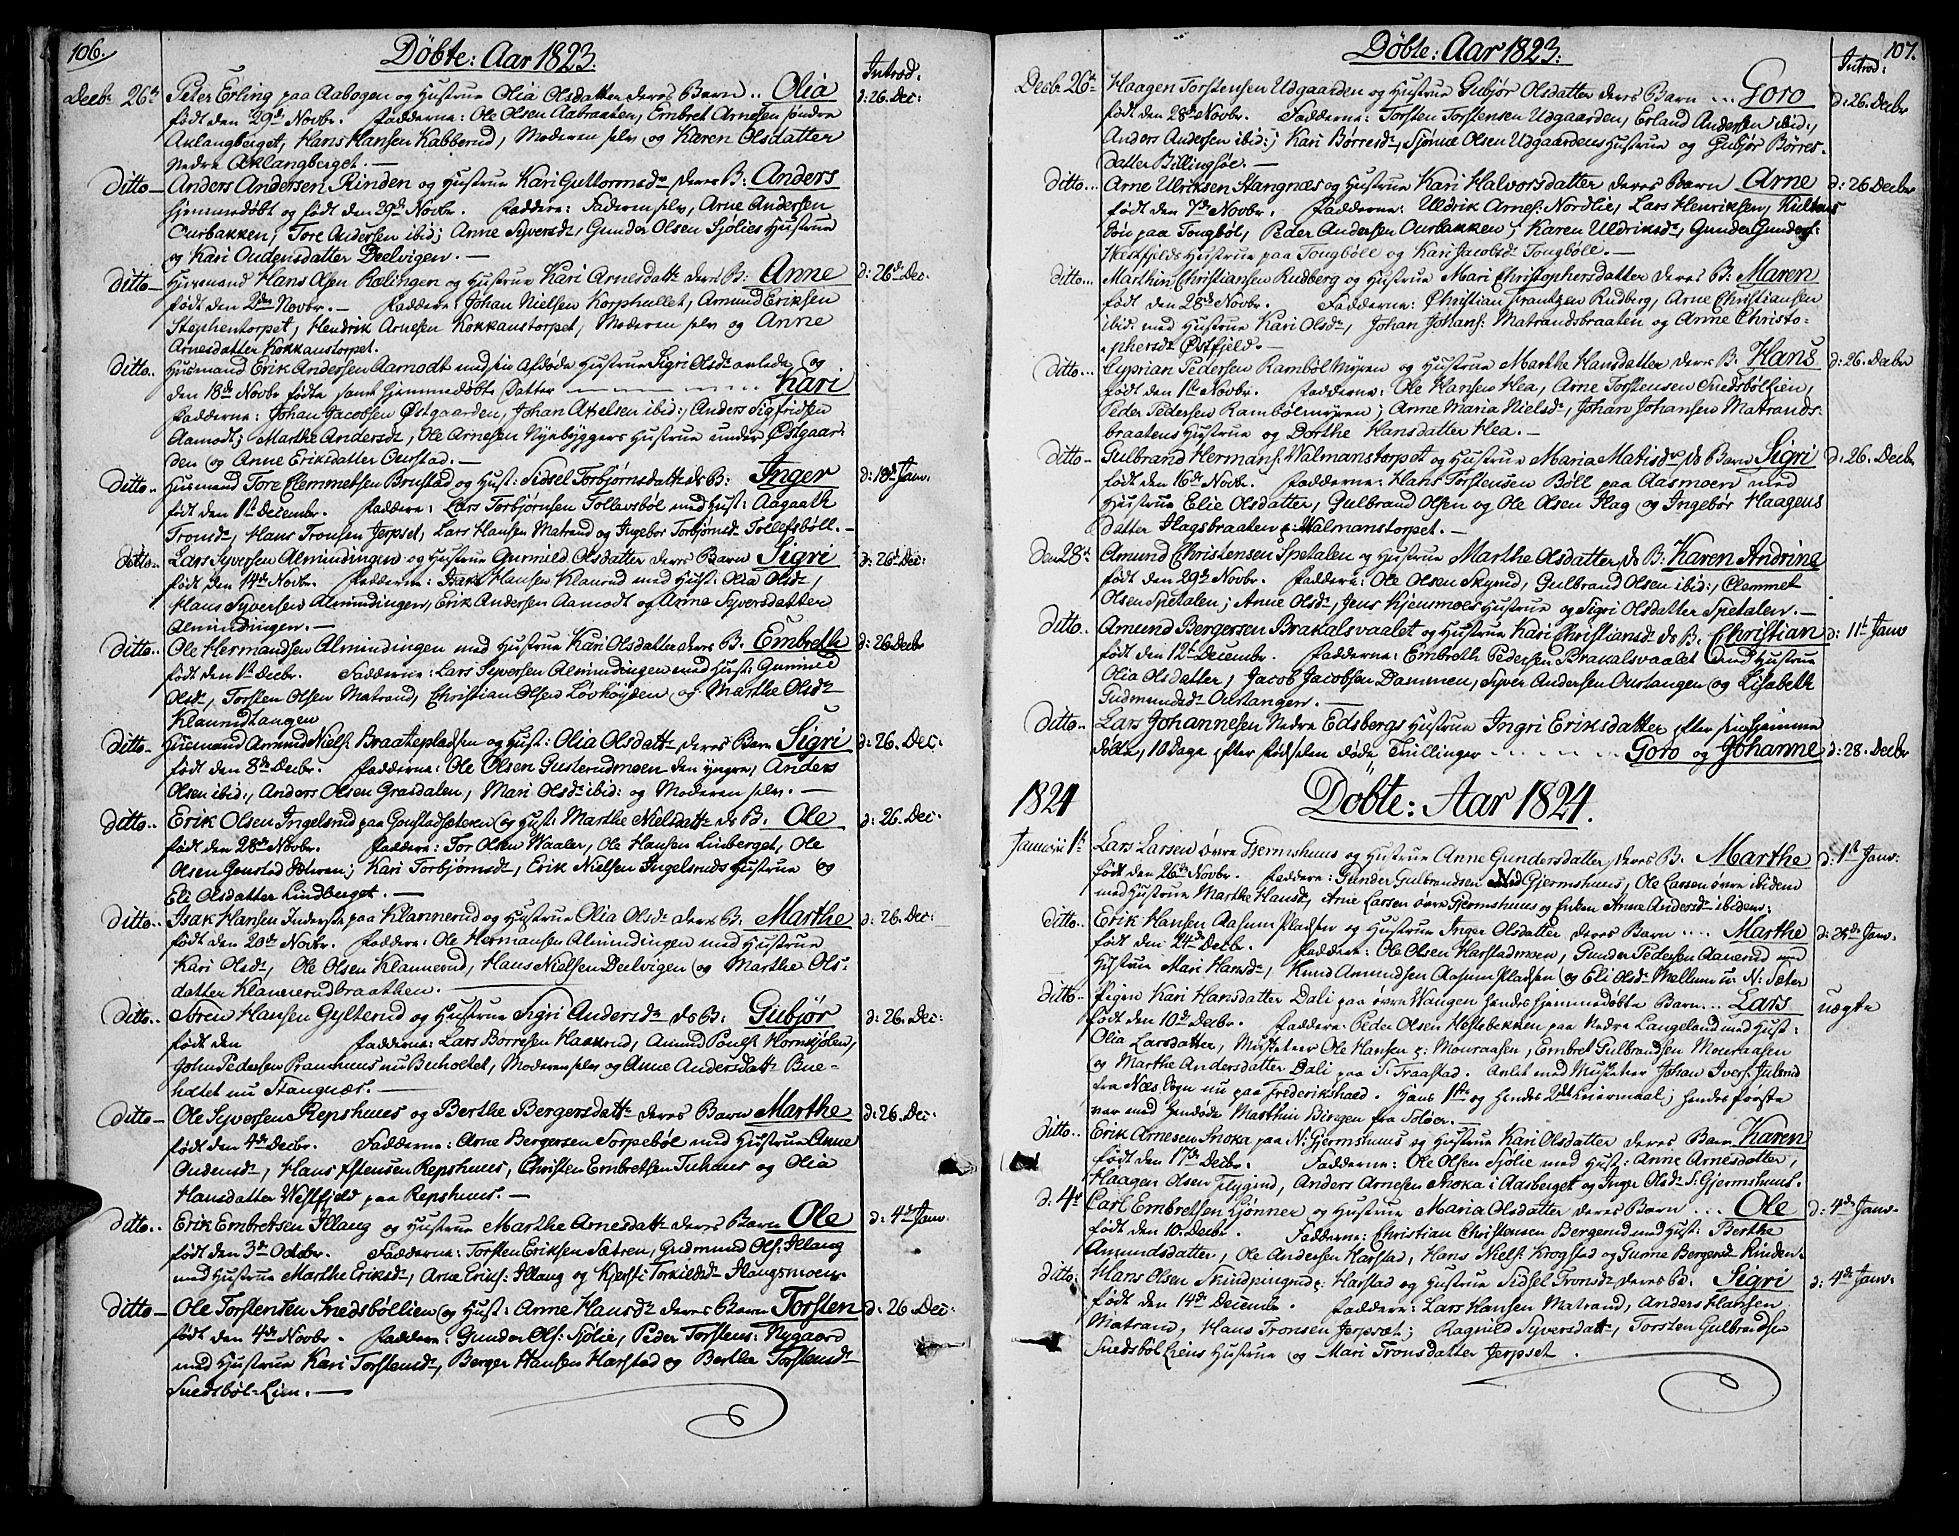 106.
Döbte: Aar 1823.
Introd:
Decbr 26de Peter Erling paa Aabogen og Hustrue Olia Olsdatter deres Barn .. Olia d: 26. Dec:
födt den 29de Novbr. Fadderne: Ole Olsen Aabraaten, Embret Arnesen söndre
Aklangberget, Hans Hansen Kabberud, Moderen selv og Karen Olsdatter
Nedre Aklangberget. —
Ditto — Anders Andersen Rinden og Hustrue Kari Guttormsdr deres B: Anders
hjemmedöbt og födt den 29de Novbr. Faddere: Faderen selv, Arne Andersen
Ourbakken, Tore Andersen ibid; Anne Syversdr, Gunder Olsen Sjölies Hustrue
og Kari Oudensdatter Deelvigen. —
Ditto — Huusmand Hans Olsen Rolingen og Hustrue Kari Arnesdatr deres B: Anne d: 26de Dec:
födt den 2den Novbr. — Faddere: Johan Nielsen Korphullet, Amund Eriksen
Stephentorpet, Hendrik Arnesen Kokkanstorpet, Moderen selv og Anne
Arnesdatter Kokkanstorpet.
Ditto.. Husmand Erik Andersen Aamodt med sin Afdöde Hustrue Sigri Olsdr avlede og
den 18de Novbr födte, samt hjemmedöbte Datter — Kari
Fadderne: Johan Jacobsen Östgaarden, Johan Axelsen ibid:, Anders Sigfridsen
Aamodt; Marthe Andersdr, Ole Arnesen Nyebyggers Hustrue under Östgaar-
den og Anne Eriksdatter Ourstad. —
Ditto.. Husmand Tore Clemmetsen Brustad og Hust: Sidsel Torbjörnsdatr ds B: Inger d: 18de Janv:
födt den 1st December. Faddere: Lars Torbjörnsen Tollavsböl med Hust: Aagaath
Tronsdr, Hans Tronsen Jerpset, Lars Hansen Matrand og Ingebor Torbjörnsdr Tollefsböll. —
Ditto.. Lars Syversen Almindingen og Hustrue Gunnild Olsdatter deres Barn Sigri d: 26de Dec:
födt den 14de Novbr. Fadderne: Isak Hansen Klanerud med Hust: Olia Olsdr,
Hans Syversen Almindingen, Erik Andersen Aamodt og Arne Syversdatter
Almindingen. —
Ditto.. Ole Hermandsen Almindingen med Hustrue Kari Olsdatter deres B: Embreth d: 26 Decbr
födt den 1st Decbr. Fadderne: Lars Syversen Almindingen med Hust: Gunnild
Olsdr, Torsten Olsen Matrand, Christian Olsen Lövhöyden, og Marthe Olsdr
Klanrudtangen
Ditto — Husmand Amund Niels: Braatepladsen og Hust: Olia Olsdatr deres Barn Sigri d: 26. Dec:
födt den 8de Decbr. Fadderne: Ole Olsen Gusterudmoen den yngre, Anders
Olsen ibid:, Anders Olsen Grasdalen, Mari Olsdr ibid: og Moderen selv. —
Ditto.. Erik Olsen Ingelsrud paa Gonstadsæteren og Hust: Marthe Nielsdatr ds B. Ole d: 26. Dec:
födt den 28de Novbr. Faddere: Tor Olsen Waaler, Ole Hansen Linberget, Ole
Olsen Gonstad Sæteren; Kari Torbjörnsdr, Erik Nielsen Ingelsruds Hustrue og
Eli Olsdatter Lindberget. —
Ditto.. Isak Hansen Inderste paa Klannerud og Hustrue Olia Olsdr deres B: Marthe d: 26. Dec:
födt den 20de Novbr. Faddere: Ole Hermansen Almindingen med Hustrue
Kari Olsdr, Ole Olsen Klannerud, Hans Nielsen Deelvigen og Marthe Ols-
datter Klannerudbraathen. —
Ditto.. Aren Hansen Gylterud og Hustrue Sigri Andersdr ds B: Gubjör d: 26. Dec:
födt den Fadderne: Lars Börresen Haakrud, Amund Pouls: Hornkjölen,
John Pedersen Prammhus nu Bueholtet, Moderen selv og Anne Andersdatr Bue-
holtet nu Stangnæs. —
Ditto — Ole Syversen Repshuus og Berthe Bergersdatr deres Barn Marthe d: 26. Dec:
födt den 4de Decbr. Fadderne: Arne Bergersen Torpeböl med Hustrue Anne
Oudensdr, Hans Estensen Repshuus, Christen Embretsen Tuhuus og Olia
Hansdatter Westfjeld paa Repshuus. —
Ditto.. Erik Embretsen Illaug og Hustrue Marthe Arnesdatr deres Barn Ole d: 4de Janv.
födt den 3de Octobr. Fadderne: Torsten Eriksen Sætren, Gudmund Ols: Illaug
med Hustrue Marthe Eriksdr, Arne Erics: Illaug og Kjersti Torkildsdr Ilaugsmoen.
Ditto — Ole Torstensen Snedsböllien og Hust: Anne Hansdr deres Barn Torsten d: 26. Dec:
födt den 4de Novbr. Faddere: Gunder Ols: Sjölie, Peder Torstens: Nygaard
med Hustrue Kari Torstensdr, Berger Hansen Harstad og Berthe Torstensdr
Snedsböl-Lien. —
107.
Döbte: Aar 1823.
Introd:
Decbr 26de Haagen Torstensen Udgaarden og Hustrue Gubjör Olsdatter deres Barn ... Goro d: 26. Decbr
födt den 28de Novbr. Fadderne: Torsten Torstensen Udgaarden, Erland Andersen ibid:,
Anders Andersen ibid:; Kari Börresdr, Sjönne Olsen Udgaardens Hustrue og Gubjör Börres-
datter Billingsöe. —
Ditto... Arne Ulriksen Stangnæs og Hustrue Kari Halvorsdatter deres Barn Arne d: 26 Decbr
födt den 7de Novbr. Fadderne: Uldrik Arnes: Nordlie, Lars Henriksen,
Sön paa Tongböl, Peder Andersen Ourbakken; Karen Uldriksdr, Gunder Gunders:
Heskfjelds Hustrue paa Tongböll og Kari Jacobsdr Tongböll. —
Ditto... Marthin Christiansen Rudberg og Hustrue Mari Christophersdatter deres B: Maren
födt den 28de Novbr. Fadderne: Christian Frantzen Rudberg, Arne Christiansen
ibid: med Hustrue Kari Olsdr, Johan Johans: Matrandsbraaten og Anne Christo-
phersdr Östfjeld. —
Ditto... Cyprian Pedersen Ramböl Myren og Hustrue Marthe Hansdatter deres B: Hans d: 26. Decbr
födt den 1st Novbr. Fadderne: Ole Hansen Hea, Arne Torstensen Snedsböllien,
Peder Pedersen Rambölmyren; Anne Maria Nielsdr, Johan Johansen Matrands-
braatens Hustrue og Dorthe Hansdatter Hea. —
Ditto — Gulbrand Hermans: Walmanstorpet og Hustrue Maria Matisdr ds Barn Sigri d: 26. Decbr
födt den 16de Novbr. Fadderne: Hans Torstensen Böll paa Aasmoen med
Hustrue Elie Olsdatter, Gulbrand Olsen og Ole Olsen Flag og Ingebör Haagens
datter Flagsbraaten p: Walmanstorpet. —
Den 28de Amund Christensen Spetalen og Hustrue Marthe Olsdatter, ds B: Karen Andrine
födt den 29de Novbr. Faddere: Ole Olsen Skyrud, Gulbrand Olsen ibid:, Clemmet
Olsen Spetalen; Anne Olsdr, Jens Kjensmoes Hustrue og Sigri Olsdatter Spetalen. —
Ditto. Amund Bergersen Brakalsvaalet og Hustrue Kari Christiansdr ds B: Christian d: 11te Janv
födt den 12te Decembr. Fadderne: Embreth Pedersen Brakalsvaalet med Hustrue
Olia Olsdatter, Jacob Jacobsen Dammen, Syver Andersen Oustangen og Lisabeth
Gudmundsdr Oustangen. —
Ditto.. Lars Johannesen Nedre Edsbergs Hustrue Ingri Eriksdatter efter sine Hjemme
döbte, 10 Dage efter födselen döde Tvillinger — — Goro og Johanne d: 28. Decbr
1824 Döbte: Aar 1824.
Januarii 1st Lars Larsen övre Gjermshuus og Hustrue Anne Gundersdatter, deres B. Marthe d: 1st Janv:
födt den 26de Novbr. Faddere: Gunder Gulbrandsen Gjermshuus, Ole Larsen övre ibidem
med Hustrue Marthe Hansdr, Arne Larsen övre Gjermshuus og Enken Anne Andersdr ibidem:
Ditto.. Erik Hansen Aasum Pladsen og Hustrue Inger Olsdatter deres Barn .... Marthe d: 25de Janv:
födt den 24de Decbr. Faddere: Ole Olsen Harstadmoen, Gunder Pedersen Aanerud med
Hustrue Mari Hansdr, Knud Amundsen Aasum Pladsen og Eli Olsdr Mellum u: N: Sæter
Ditto.. Pigen Kari Hansdatter Dali paa övre Waugen hendes hjemmedöbte Barn ... Lars uægte
födt den 10de Decbr. Faddere: Peder Olsen Hestebekken paa Nedre Langeland med Hust:
Olia Larsdatter, Musketeer Ole Hansen p: Mouraasen, Embret Gulbrandsen Mouraasen
og Marthe Andersdatter Dali paa S: Traastad. Avlet med Musketeer Johan Ivers: Julsrud
fra Næs Sogn nu paa Frederikshald. Hans 1ste og hendes 2det Leiermaal; hendes förste
var med hendöde Marthin Edingen fra Solöer. —
Ditto.. Erik Arnesen Snoka paa N: Gjermshuus og Hustrue Kari Olsdatter deres Barn Karen
födt den 17de Decbr. Fadderne: Ole Olsen Sjölie med Hust: Anne Arnesdatter,
Haagen Olsen Flygind, Anders Arnesen Snoka i Aasberget og Inger Olsdr S: Gjermshuus.
d. 4de Carl Embretsen Kjönner og Hustrue Maria Olsdatter deres Barn ... Ole d: 4de Janv-
födt den 10. Decbr. Fadderne: Christian Christensen Bergerud med Hust: Berthe
Amundsdatter, Ole Andersen Harstad, Hans Niels: Krogstad og Gunne Bergersdr Rinden.
Ditto. Hans Olsen Skudpingrud p: Harstad og Hustrue Sidsel Tronsdr deres B: Sigri d: 4de Janv:
födt den 14de Decembr. Faddere: Lars Hansen Matrand, Anders Hansen
Matrand, Hans Tronsen Jerpsæt; Ragnild Syversdatr, Torsten Gulbrandsen
Snedsböl Liens Hustrue og Mari Tronsdatter Jerpset.